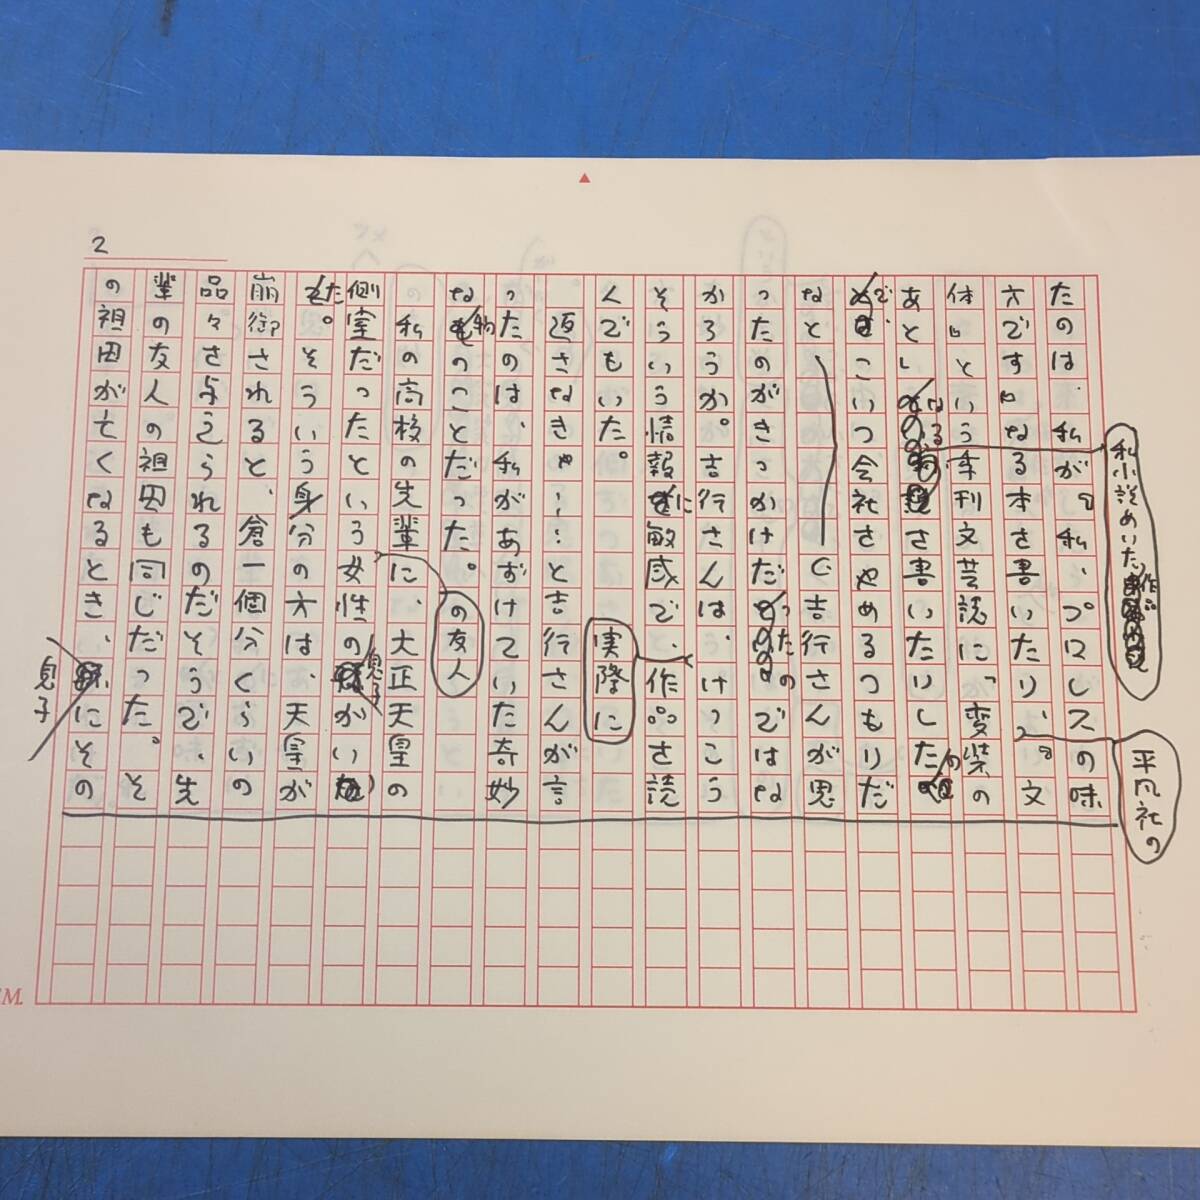 2
たのは、私が『私、プロレスの味
方です』なる本を書いたり、『文
体』という季刊文芸誌に「変装の
あとしを書いたりしたの
でこいつ会社をやめるつもりだ
なと――と吉行さんが思
ったのがきっかけだったのではな
かろうか。吉行さんは、けっこう
そういう情報に敏感で、作品を読
んでもいた。
返さなきゃ……と吉行さんが言
ったのは、私があずけていた奇妙
な物のことだった。
私の高校の先輩に、大正天皇の
側室だったという女性の息子がい
た。そういう身分の方は、天皇が
崩御されると、倉一個分くらいの
品々を与えられるのだそうで、先
輩の友人の祖母も同じだった。そ
の祖母が亡くなるとき、息子にその
私小説めいた作品
平凡社の
実際に
の友人
なる